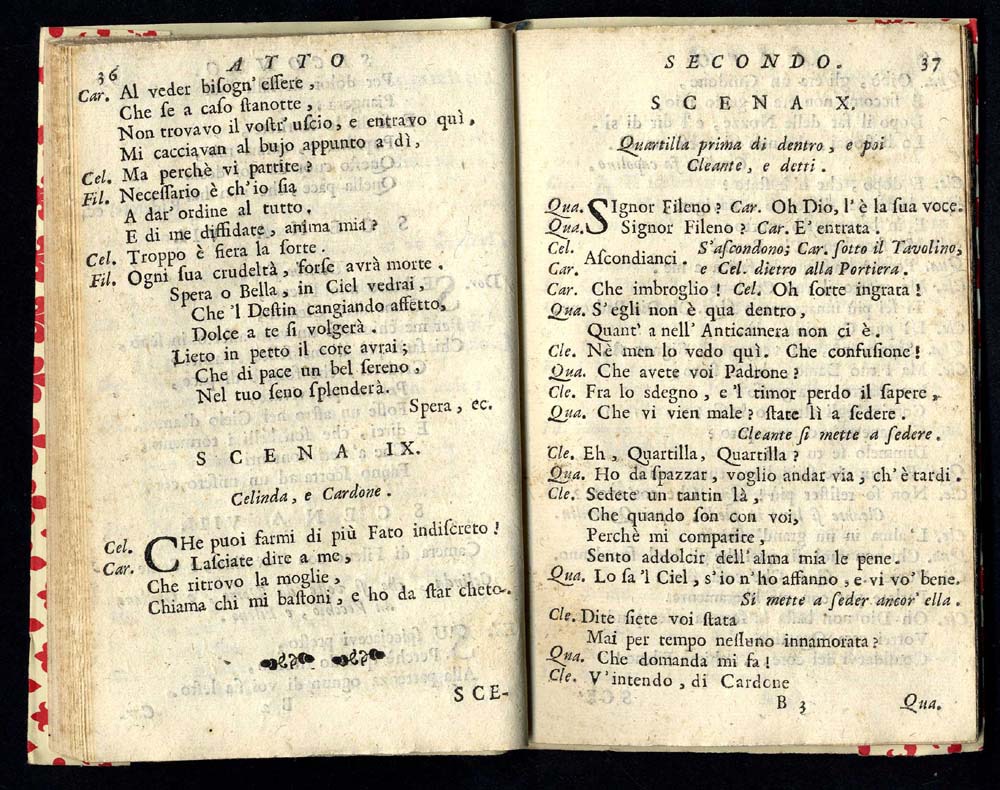 36 ATTO
Car. Al veder bisogn' essere,
Che se a caso stanotte,
Non trovavo il vostr' uscio, e entravo quì,
Mi cacciavan al bujo appunto a dì,
Cel. Ma perchè vi partite?
Fil. Necessario è ch'io sia
A dar' ordine al tutto.
E di me diffidate, anima mia?
Cel. Troppo è fiera la sorte.
Fil. Ogni sua crudeltà, forse avrà morte.
Spera o Bella, in Ciel vedrai,
Che 'l Destin cangiando affetto,
Dolçe a te si volgerà.
Lieto in petto il core avrai;
Che di pace un bel sereno,
Nel tuo seno splenderà.
Spera, ec.
SCENA IX.
Celinda, e Cardone.
Cel. CHe puoi farmi di più Fato indiscreto!
Car. Lasciate dire a me,
Che ritrovo la moglie,
Chiama chi mi bastoni, e ho da star cheto.
SCE-
SECONDO. 37
SCENA X.
Quartilla prima di dentro, e poi
Cleante, e detti.
Qua. SIgnor Fileno? Car. Oh Dio, l'è la sua voce.
Qua. Signor Fileno? Car. E' entrata.
Cel. S'ascondono; Car. sotto il Tavolino,
Car. Ascondianci. e Cel. dietro alla Portiera.
Car. Che imbroglio! Cel. Oh sorte ingrata!
Qua. S'egli non è qua dentro,
Quant' a nell' Anticamera non ci è.
Cle. Nè men lo vedo quì. Che confusione!
Qua. Che avete voi Padrone?
Cle. Fra lo sdegno, e 'l timor perdo il sapere,
Qua. Che vi vien male? state lì a sedere.
Cleante si mette a sedere.
Cle. Eh, Quartilla, Quartilla?
Qua. Ho da spazzar, voglio andar via, ch'è tardi.
Cle. Sedete un tantin là,
Che quando son con voi,
Perchè mi compatite,
Sento addolcir dell'alma mia le pene.
Qua. Lo sa 'l Ciel, s'io n'ho affanno, e vi vo' bene.
Si mette a seder ancor' ella.
Cle. Dite siete voi stata
Mai per tempo nessuno innamorata?
Qua. Che domanda mi fa!
Cle. V'intendo, di Cardone
B 3 Qua.